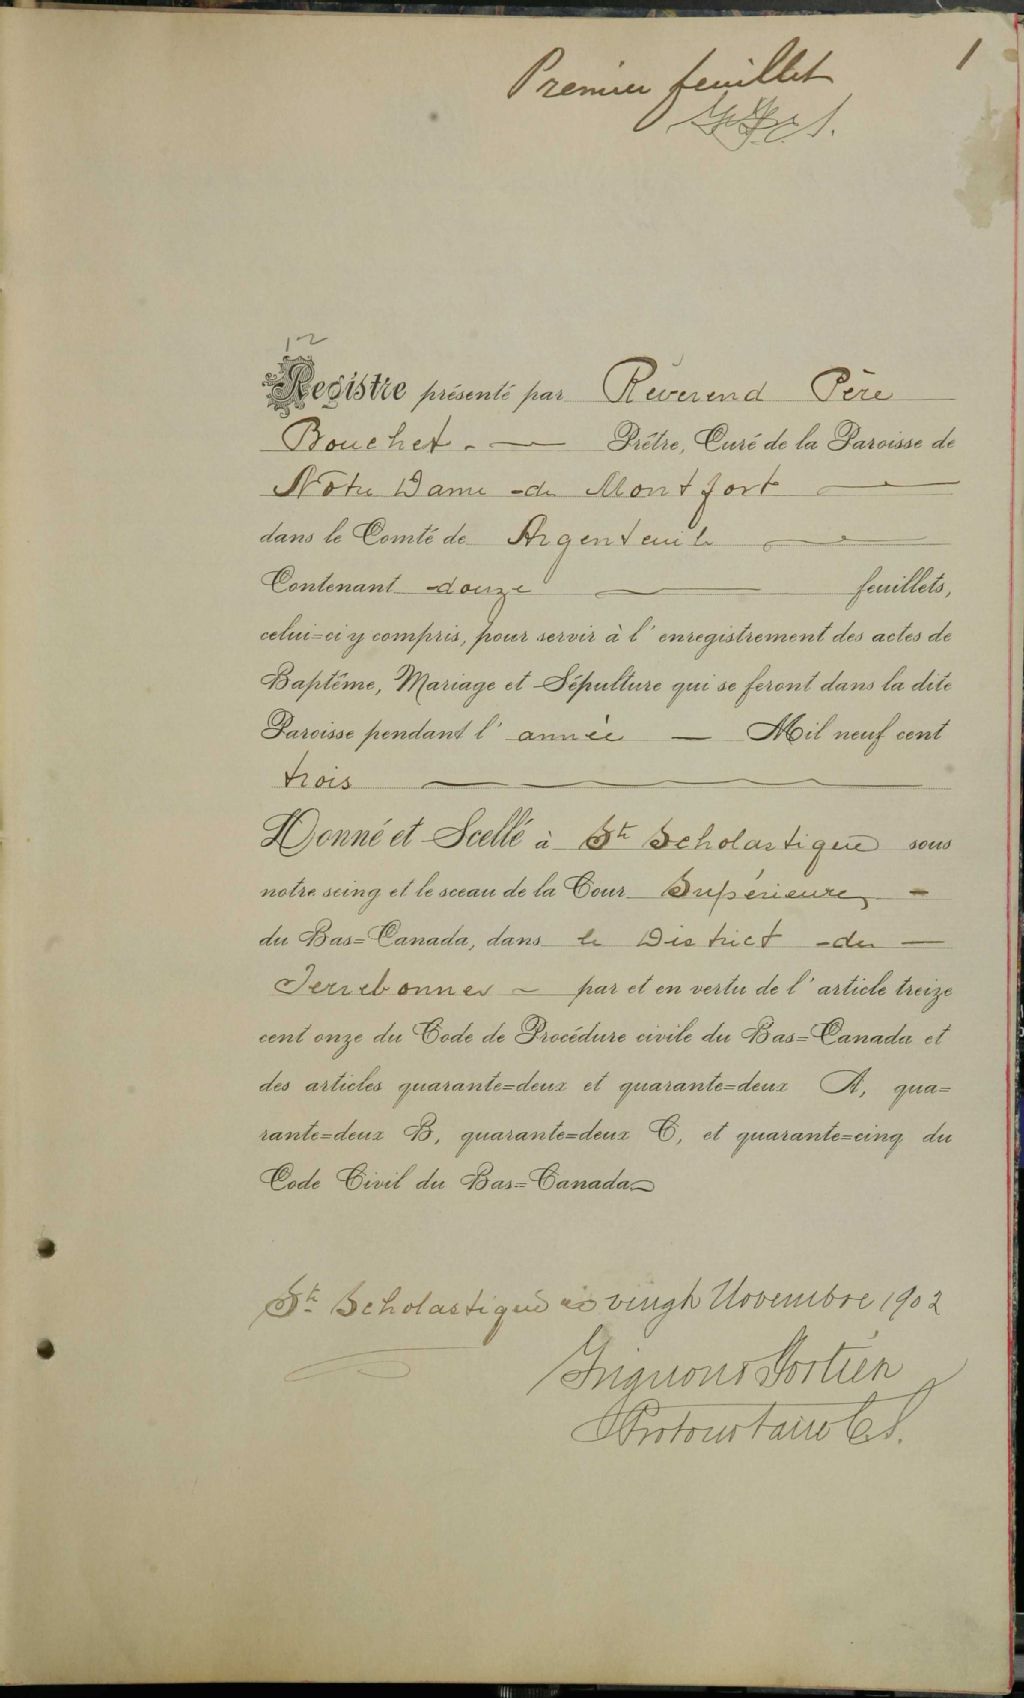 1
Premier feuillet
12
Registre présenté par Réverend Père
Bouchet. Prêtre, Curé de la Paroisse de
Notre Dame de Montfort
dans le Comté de Argenteuil
Contenant douze feuillets,
celui=ci y compris, pour servir à l'enregistrement des actes de
Baptême, Mariage et Sépulture qui se feront dans la dite
Paroisse pendant l'année — Mil neuf cent
trois
Donné et Scellé à Ste Scholastique sous
notre seing et le sceau de la Cour Supérieure, -
du Bas=Canada, dans le District de —
Terrebonne ~ par et en vertu de l'article treize
cent onze du Code de Procédure civile du Bas=Canada et
des articles quarante=deux et quarante=deux A, qua=
rante=deux B, quarante=deux C, et quarante=cinq du
Code Civil du Bas=Canada
Ste Scholastique vingt Novembre 1902
Grignon & Fortier
Protonotaire C.S.